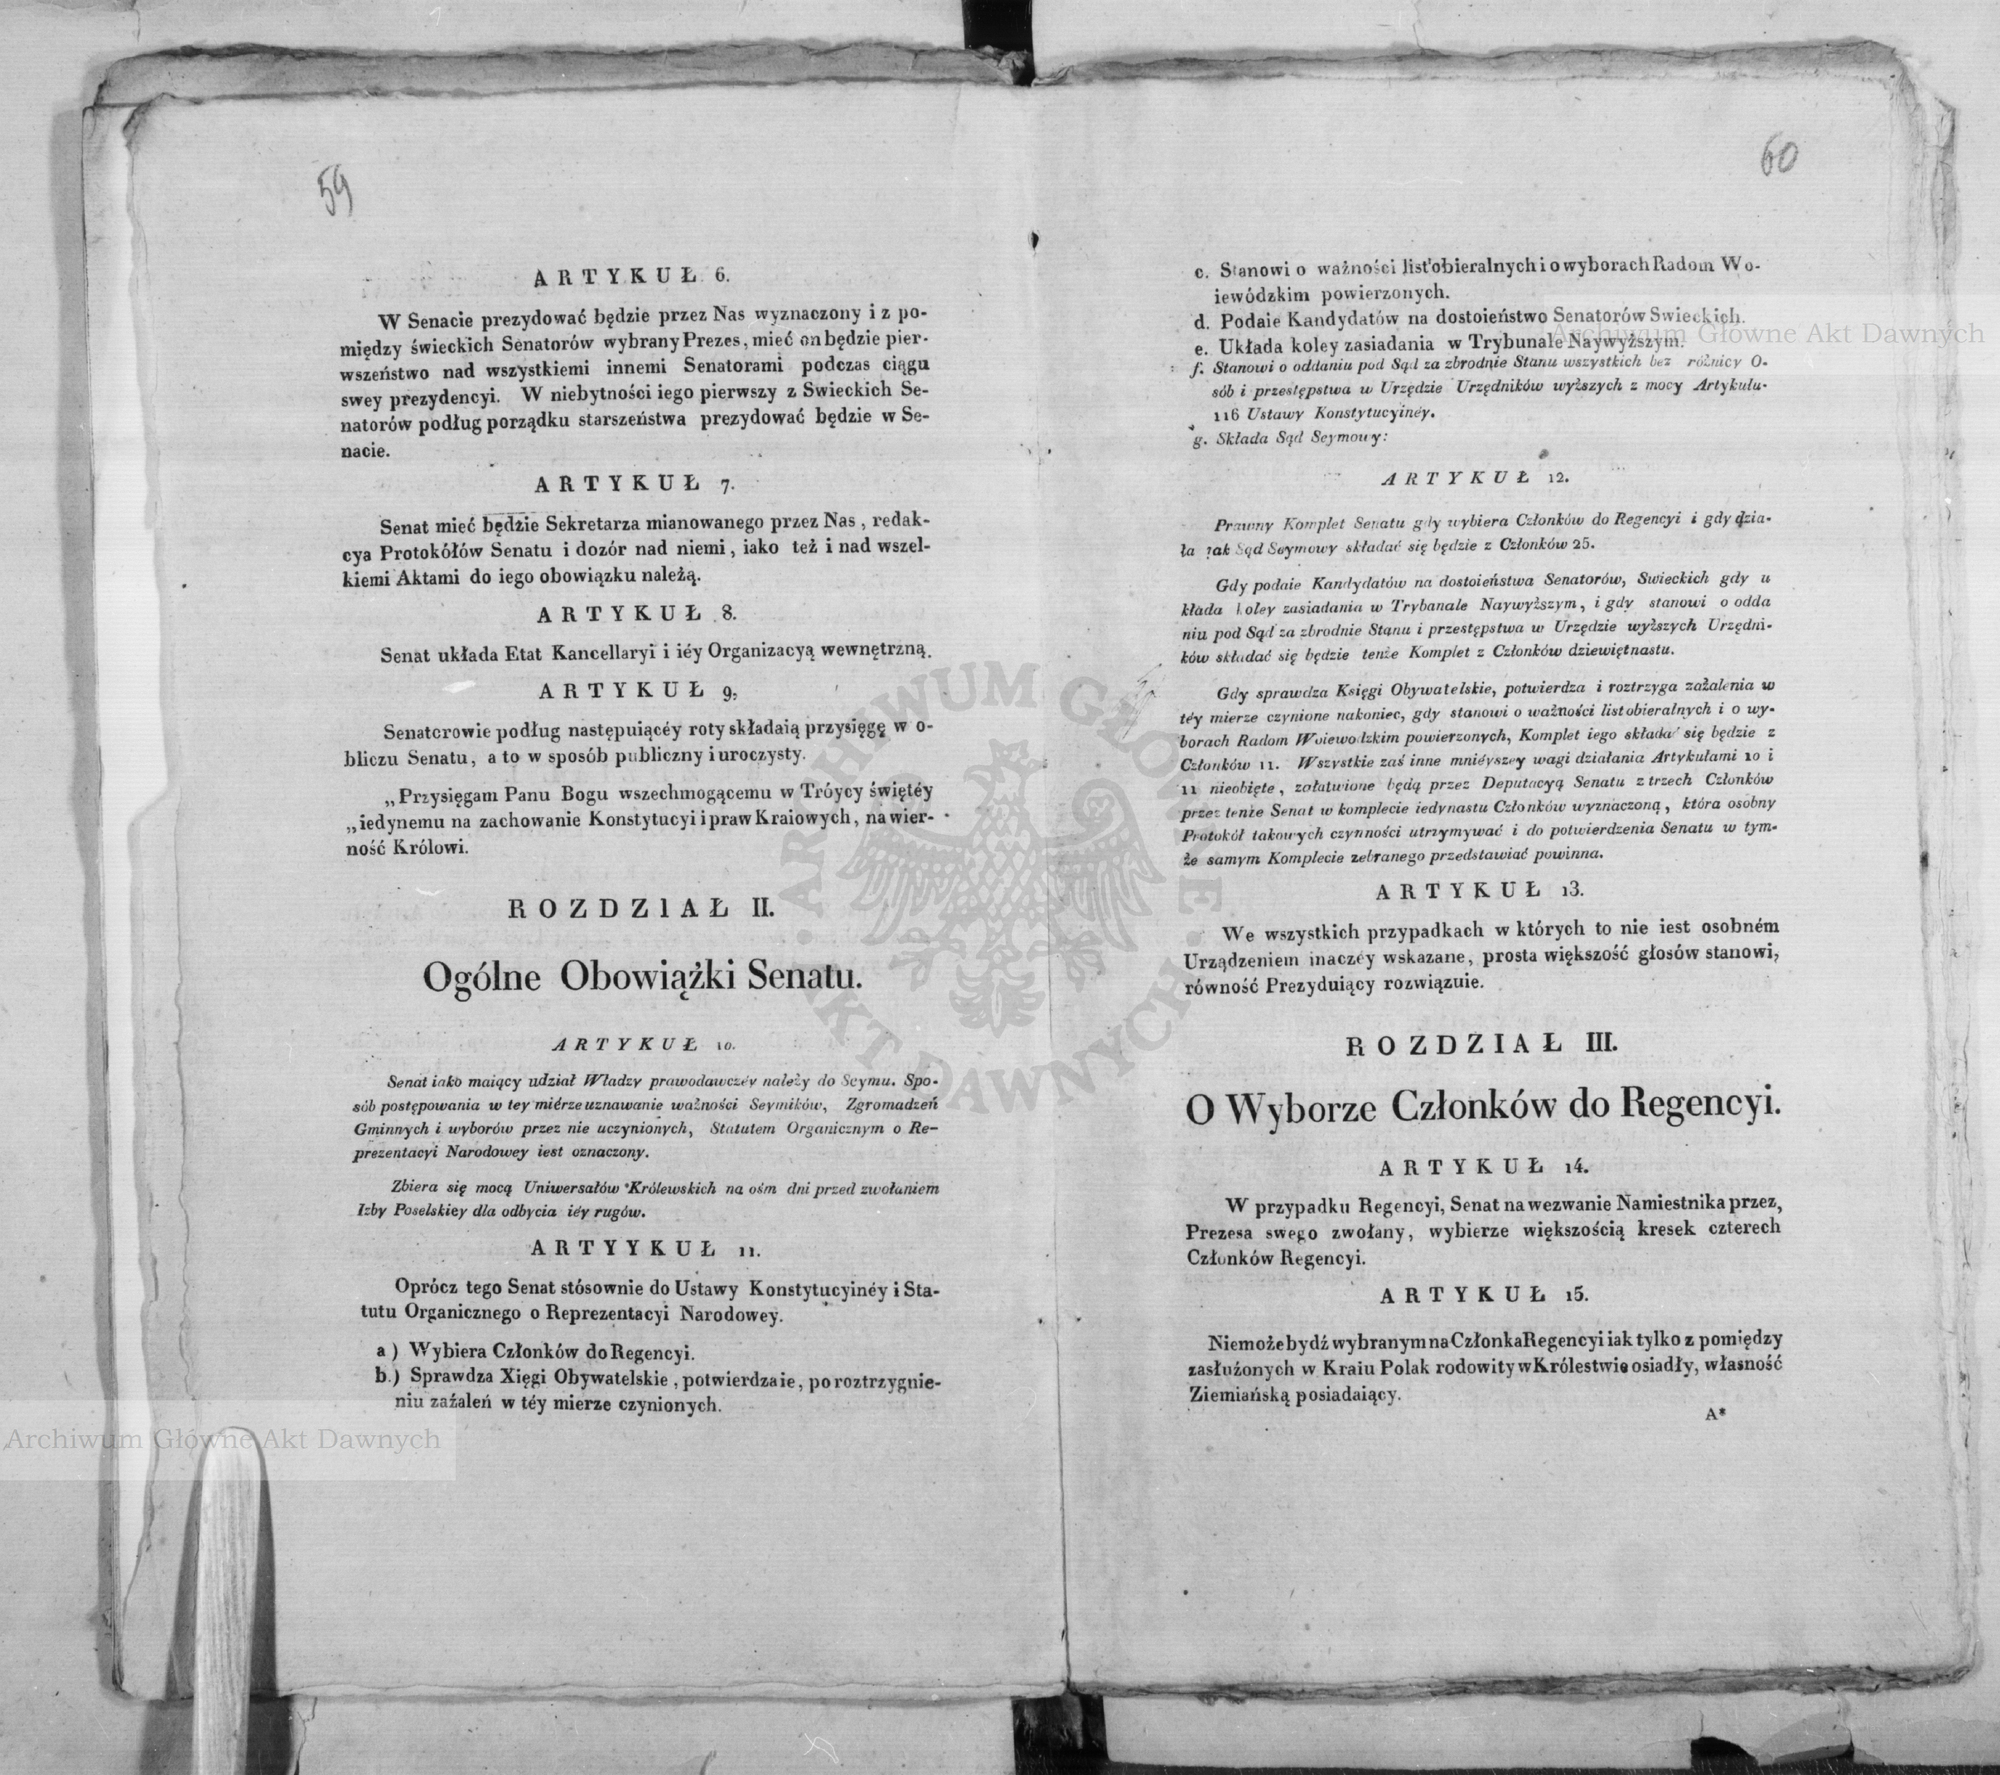 59
ARTYKUŁ 6.
W Senacie prezydować będzie przez Nas wyznaczony i z po-
między świeckich Senatorów wybrany Prezes, mieć on będzie pier-
wszeństwo nad wszystkiemi innemi Senatorami podczas ciągu
swey prezydencyi. W niebytności iego pierwszy z Swieckich Se-
natorów podług porządku starszeństwa prezydować będzie w Se-
nacie.
ARTYKUŁ 7.
Senat mieć będzie Sekretarza mianowanego przez Nas, redak-
cya Protokółów Senatu i dozór nad niemi, iako też i nad wszel-
kiemi Aktami do iego obowiązku należą.
ARTYKUŁ 8.
Senat układa Etat Kancellaryi i iéy Organizacyą wewnętrzną.
ARTYKUŁ 9.
Senatorowie podług następuiącéy roty składaią przysięgę w o-
bliczu Senatu, a to w sposób publiczny i uroczysty.
„Przysięgam Panu Bogu wszechmogącemu w Tróycy świętéy
„iedynemu na zachowanie Konstytucyi i praw Kraiowych, na wier-
ność Królowi.
ROZDZIAŁ II.
Ogólne Obowiążki Senatu.
ARTYKUŁ 10.
Senat iako maiący udział Władzy prawodawczéy należy do Seymu. Spo-
sób postępowania w tey miérze uznawanie ważności Seymików, Zgromadzeń
Gminnych i wyborów przez nie uczynionych, Statutem Organicznym o Re-
prezentacyi Narodowey iest oznaczony.
Zbiera się mocą Uniwersałów Królewskich na ośm dni przed zwołaniem
Izby Poselskiey dla odbycia iéy rugów.
ARTYYKUŁ 11.
Oprócz tego Senat stósownie do Ustawy Konstytucyinéy i Sta-
tutu Organicznego o Reprezentacyi Narodowey.
a) Wybiera Członków do Regencyi.
b.) Sprawdza Xięgi Obywatelskie, potwierdzaie, po roztrzygnie-
niu zażaleń w téy mierze czynionych.
60
c. Stanowi o ważności list obieralnych i o wyborach Radom Wo-
iewódzkim powierzonych.
d. Podaie Kandydatów na dostoieństwo Senatorów Swieckich.
e. Układa koley zasiadania w Trybunale Naywyższym.
f. Stanowi o oddaniu pod Sąd za zbrodnie Stanu wszystkich bez różnicy O-
sób i przestępstwa w Urzędzie Urzędników wyższych z mocy Artykułu
116 Ustawy Konstytucyinéy.
g. Składa Sąd Seymowy:
ARTYKUŁ 12.
Prawny Komplet Senatu gdy wybiera Członków do Regencyi i gdy dzia-
ła iak Sąd Seymowy składać się będzie z Członków 25.
Gdy podaie Kandydatów na dostoieństwa Senatorów, Swieckich gdy u
kłada koley zasiadania w Trybanale Naywyższym, i gdy stanowi o odda
niu pod Sąd za zbrodnie Stanu i przestępstwa w Urzędzie wyższych Urzędni-
ków składać się będzie tenże Komplet z Członków dziewiętnastu.
Gdy sprawdza Księgi Obywatelskie, potwierdza i roztrzyga zażalenia w
téy mierze czynione nakoniec, gdy stanowi o ważności list obieralnych i o wy-
borach Radom Woiewodzkim powierzonych, Komplet iego składać się będzie z
Członków 11. Wszystkie zaś inne mniéyszey wagi działania Artykułami 10 i
11 nieobięte, załatwione będą przez Deputacyą Senatu z trzech Członków
przez tenże Senat w komplecie iedynastu Członków wyznaczoną, która osobny
Protokół takowych czynności utrzymywać i do potwierdzenia Senatu w tym-
że samym Komplecie zebranego przedstawiać powinna.
ARTYKUŁ 13.
We wszystkich przypadkach w których to nie iest osobném
Urządzeniem inaczéy wskazane, prosta większość głosów stanowi,
równość Prezyduiący rozwiązuie.
ROZDZIAŁ III.
O Wyborze Członków do Regencyi.
ARTYKUŁ 14.
W przypadku Regencyi, Senat na wezwanie Namiestnika przez,
Prezesa swego zwołany, wybierze większością kresek czterech
Członków Regencyi.
ARTYKUŁ 15.
Niemoże bydź wybranym na Członka Regencyi iak tylko z pomiędzy
zasłużonych w Kraiu Polak rodowity w Królestwie osiadły, własność
Ziemiańską posiadaiący.
A*
Archiwum Główne Akt Dawnych
Archiwum Główne Akt Dawnych
ARCHIWUM GŁÓWNE AKT DAWNYCH